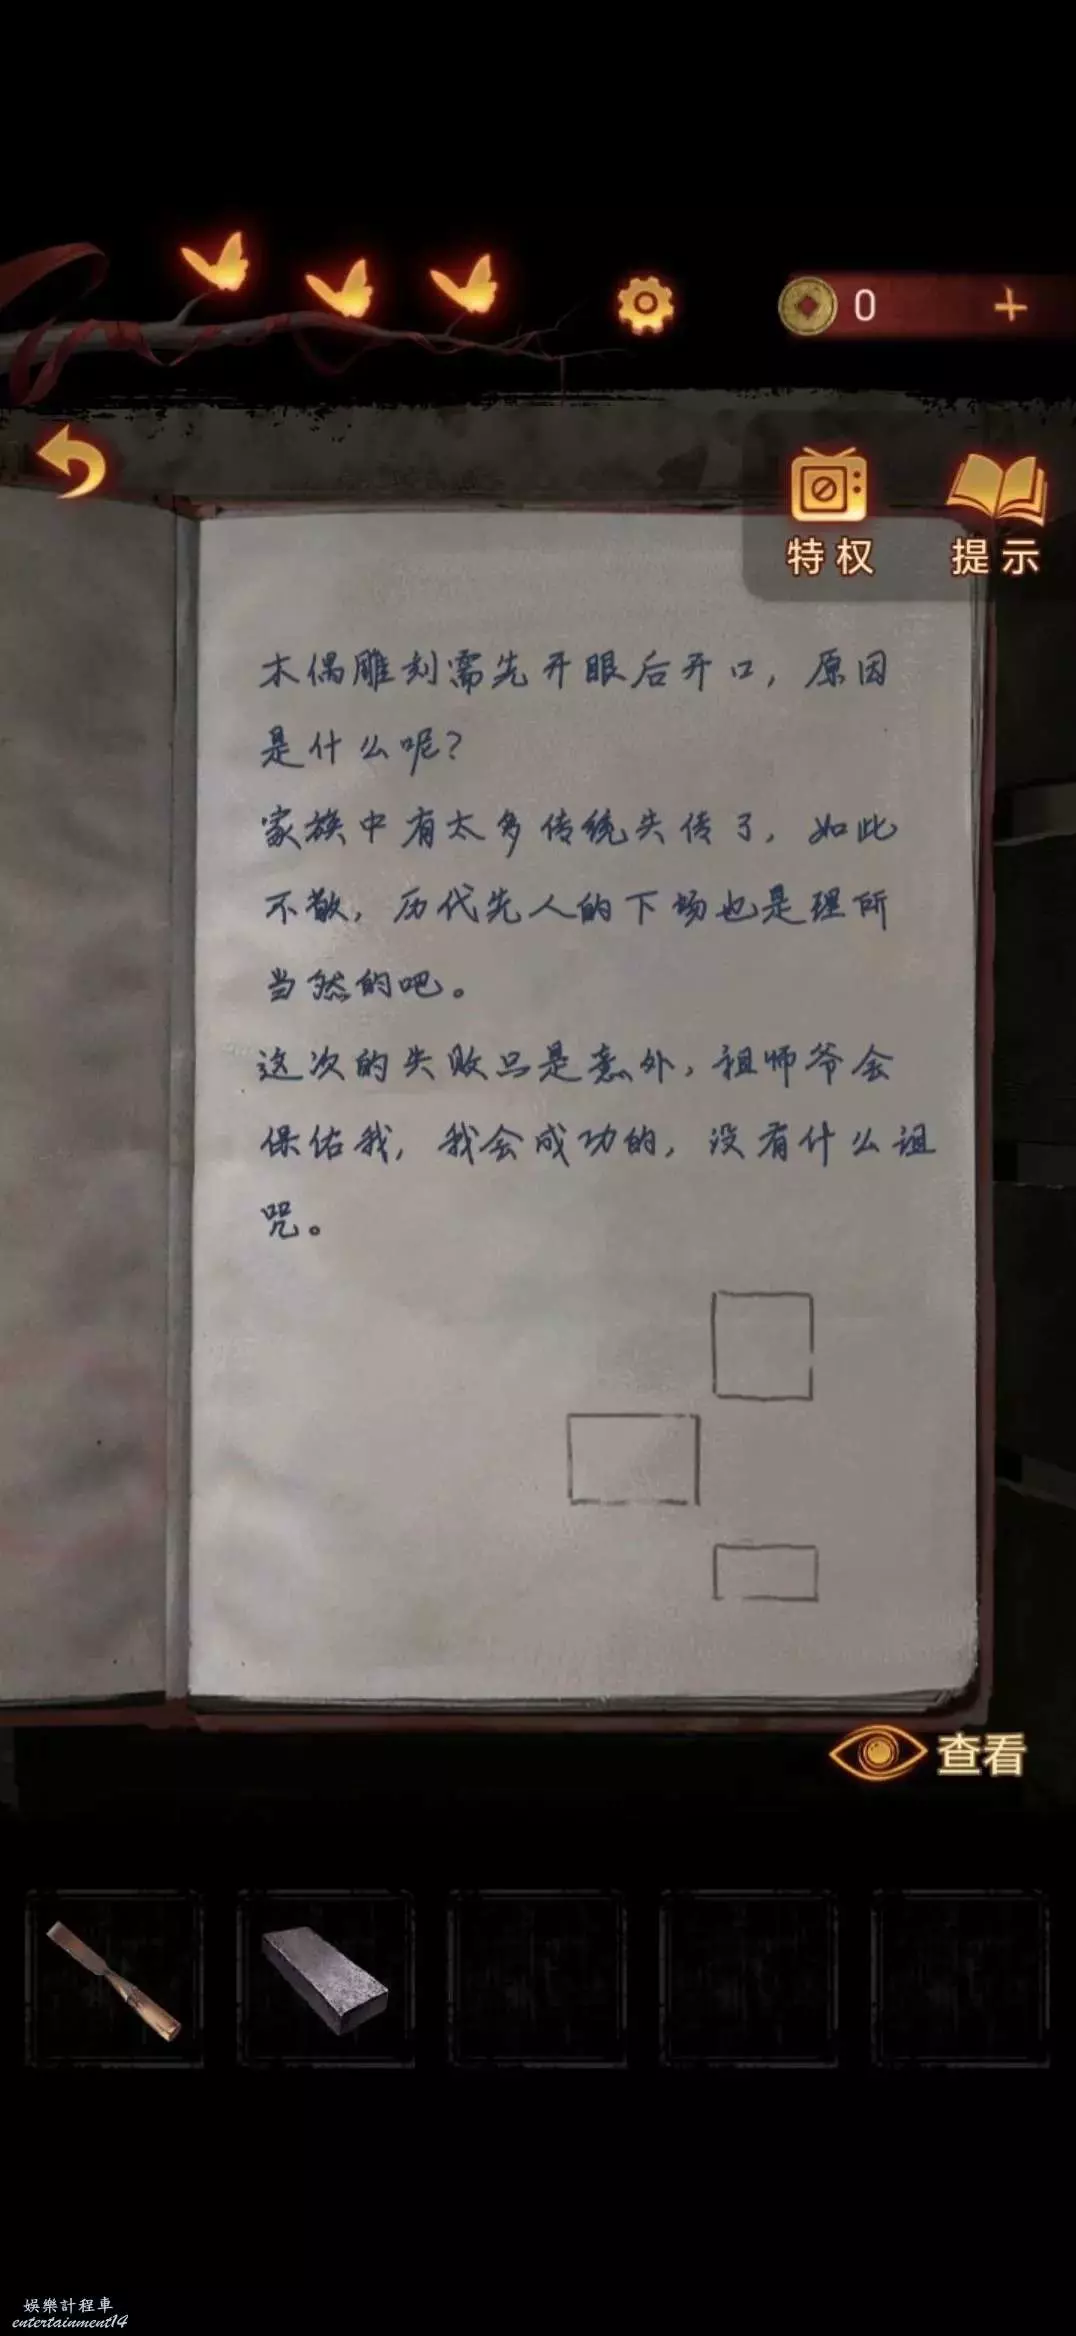 0
特权
提示
木偶雕刻需先开眼后开口，原因
是什么呢？
家族中有太多传统失传了，如此
不敬，历代先人的下场也是理所
当然的吧。
这次的失败只是意外，祖师爷会
保佑我，我会成功的，没有什么诅
咒。
查看
娛樂計程車
entertainment14